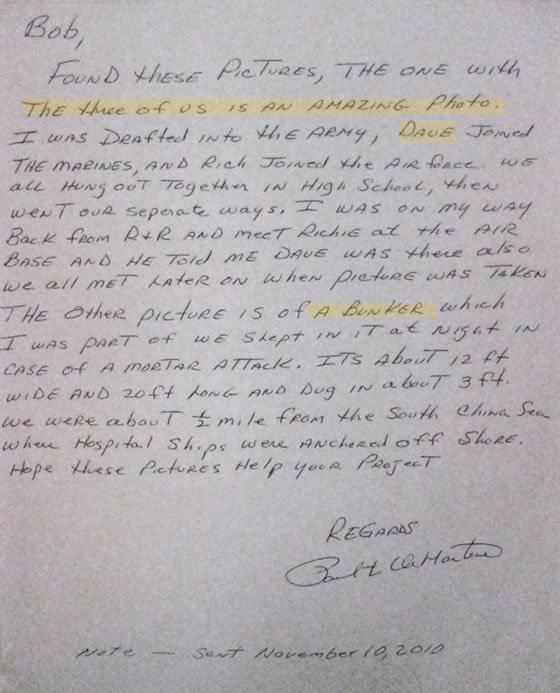 Bob,
FOUND these PICTURES, THE ONE with
The three of us is AN AMAZING Photo.
I was Drafted into the ARMY, DAVE Joined
THE MARINES, AND Rich Joined the AIR force. WE
all HUNG OUT Together IN High School, then
went our seperate ways. I was on my way
Back from R+R AND meet Richie at the AIR
BASE AND HE Told me DAVE was there also
we all MET LATER ON when picture was TAKEN
THE OTHER picture is of A BUNKER which
I was PART of WE Slept IN iT at Night IN
CASE of A MORTAR ATTACK. ITS About 12 ft
wiDE AND 20ft LONG AND Dug IN about 3 ft.
we were about ½ mile from the South China Sea
when Hospital Ships were Anchored off Shore.
Hope these Pictures Help your Project
REGARDS
Note — Sent November 10, 2010